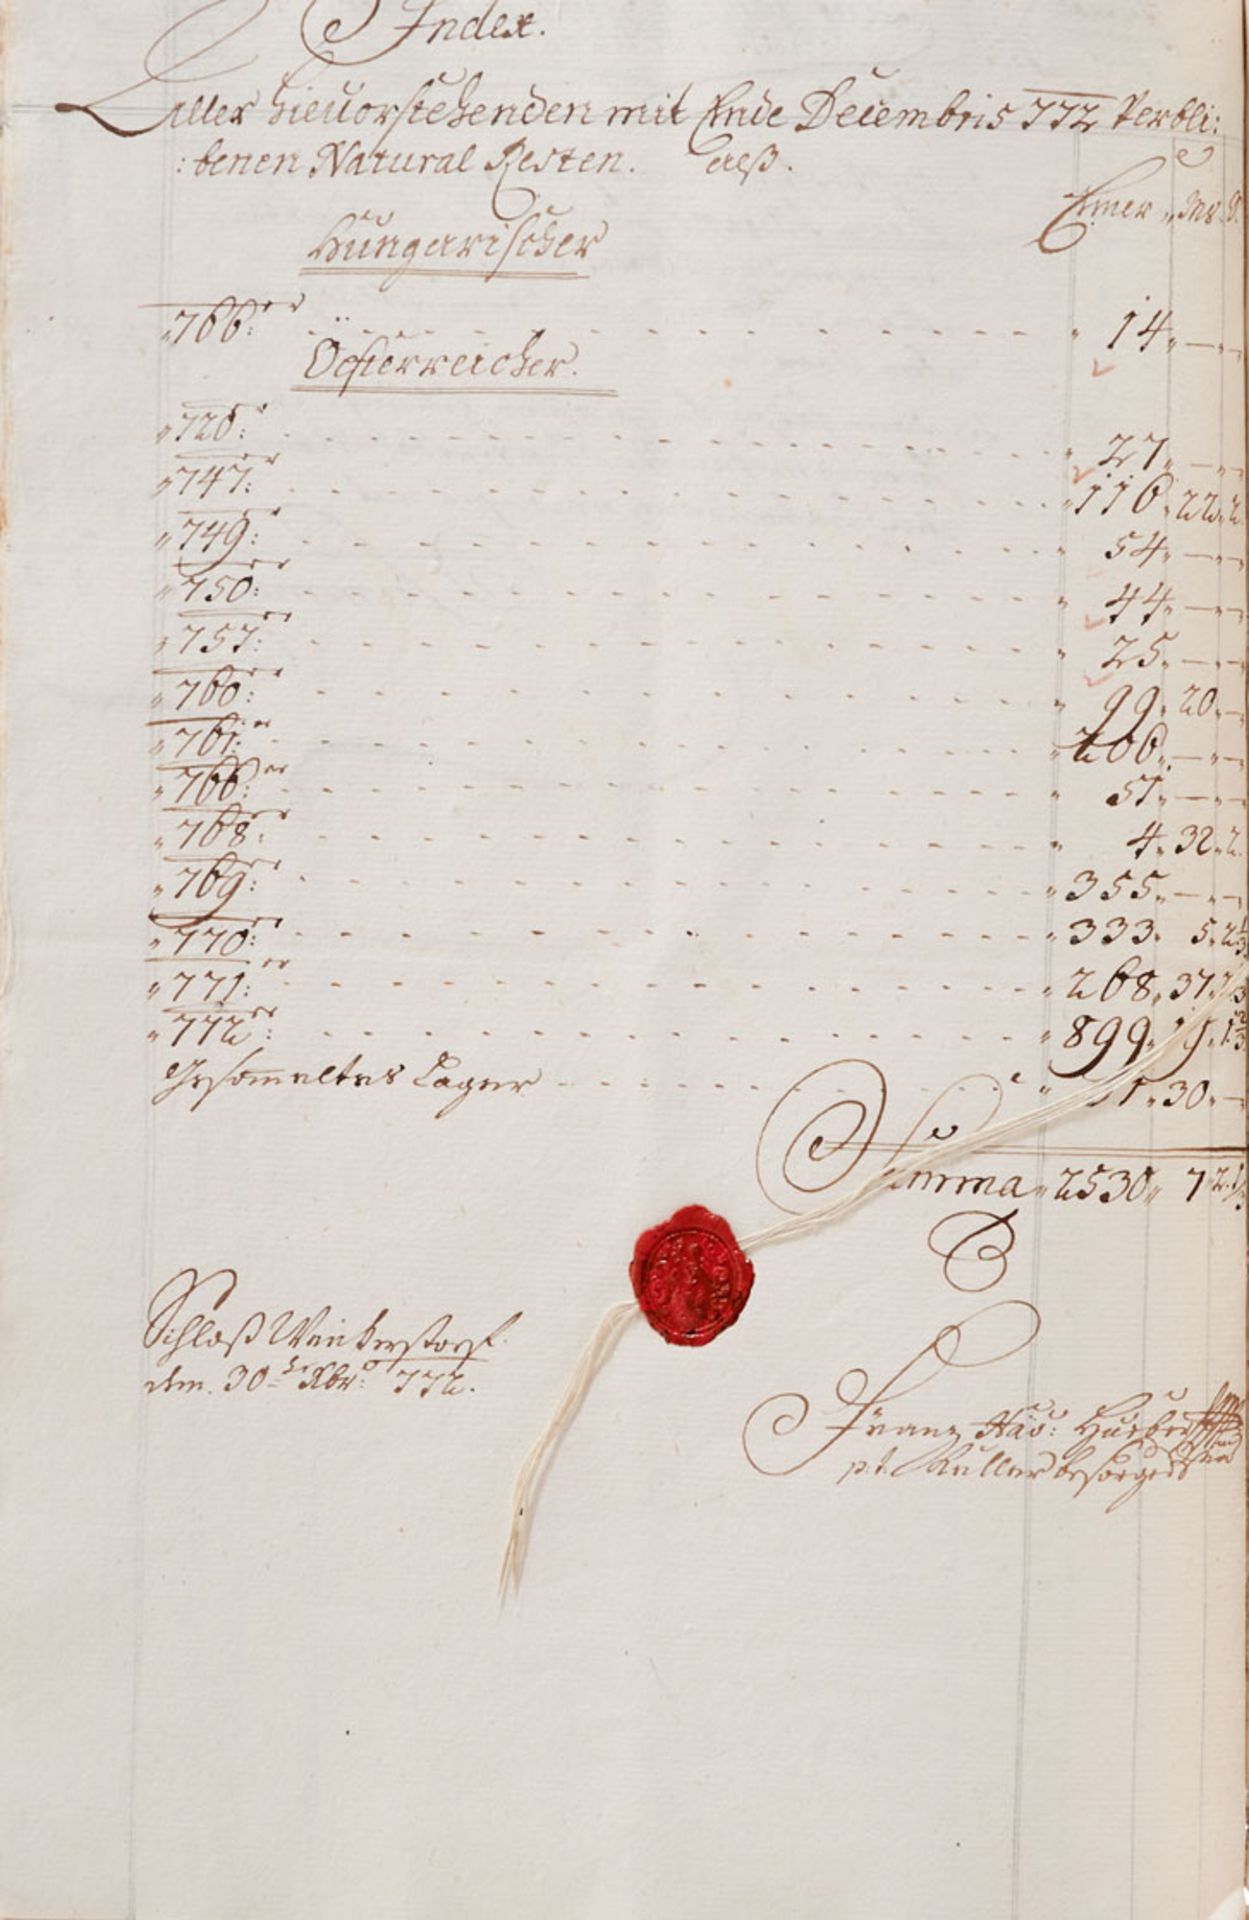 Index.
Aller hievorstehenden mit Ende Decembris 772 Verbli:
:benen Natural Resten. alß.
Emer
Hungarischer
766:er 14
Österreicher.
726:er 27
747:er 116 22 2
749:er 54
750:er 44
757:er 25
760:er 99 20
761:er 206
766:er 51
768:er 4 32 2
769:er 355
770:er 333 5 2 1/3
771:er 268 37
772er: 899 19 1 2/3
Gesammeltes Lager 30
Summa 2530 7 2 1/3
Schloß Winkerstorf.
dem 30ten Xbr: 772.
Franz Xav: Hueber
p.t. Kellerbesorger